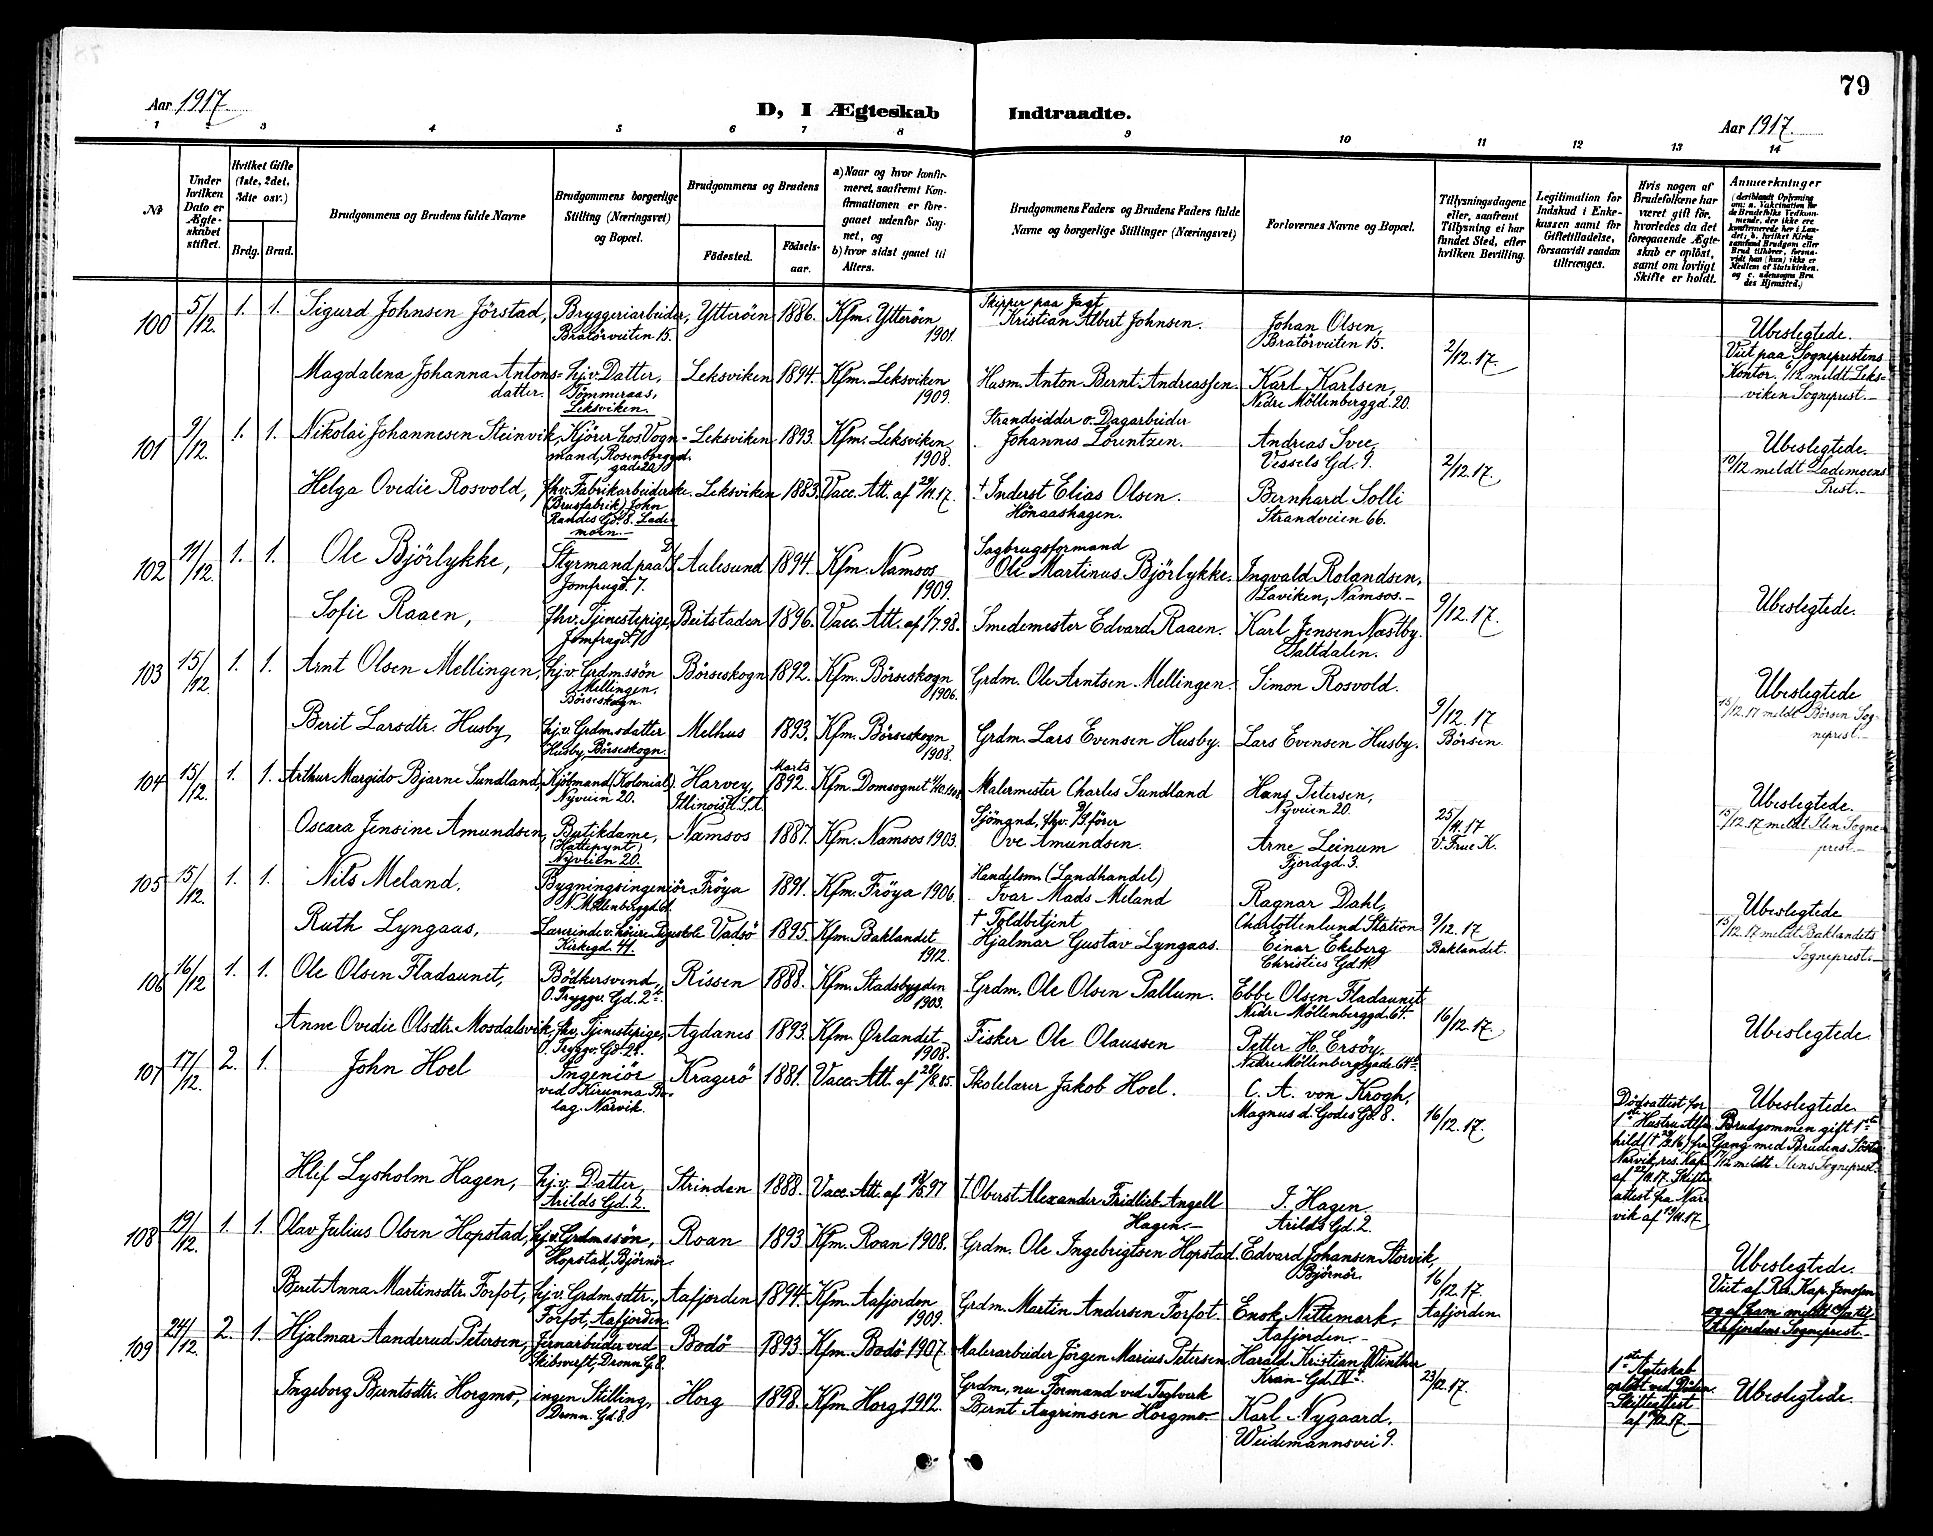 79
Aar 1917.
D, I Ægteskab
Indtraadte.
Aar 1917.
1 2 3 4 5 6 7 8 9 10 11 12 13 14
No
Under hvilken Dato er Ægteskabet stiftet.
Hvilket Gifte (1ste, 2det, 3die osv.)
Brdg. Brud.
Brudgommens og Brudens fulde Navne
Brudgommens borgerlige Stilling (Næringsvei) og Bopæl.
Brudgommens og Brudens
Fødested.
Fødselsaar.
a) Naar og hvor konfirmeret, saafremt Konfirmationen er foregaaet udenfor Sognet, og
b) hvor sidst gaaet til Alters.
Brudgommens Faders og Brudens Faders fulde Navne og borgerlige Stillinger (Næringsvei)
Forlovernes Navne og Bopæl.
Tillysningsdagene eller, saafremt Tillysning ei har fundet Sted, efter hvilken Bevilling.
Legitimation for Indskud i Enkekassen samt for Giftetilladelse, forsaavidt saadan tiltrænges.
Hvis nogen af Brudefolkene har været gift før, hvorledes da det foregaaende Ægteskab er opløst, samt om lovligt Skifte er holdt.
Anmærkninger
100 5/12. 1. 1. Sigurd Johnsen Jörstad, Bryggeriarbeider, Bratörveiten 15. Ytteröen 1886. Kfm. Ytteröen 1901. Skipper paa Jagt Kristian Albert Johnsen. Johan Olsen, Bratörveiten 15. 2/12.17. Ubeslegtede.
Viet paa Sogneprestens Kontor. meldt Leksviken Sogneprest.
Magdalena Johanna Antonsdatter. hj.v. Datter, Tømmeraas, Leksviken. Leksviken 1894. Kfm. Leksviken 1909. Hasm. Anton Bernt Andreassen. Karl Karlsen, Nedre Möllenberggd. 20.
101 9/12. 1. 1. Nikolai Johannesen Steinvik, Kjörer hos Vognmand, Rosenborggd. Leksviken 1893. Kfm. Leksviken 1908. Strandsidder o. Dagarbeider Johannes Lorentzen. Andreas Svee, Vessels Gd. 9. 2/12.17. Ubeslegtede.
10/12 meldt Lademoens Prest.
Helga Ovedie Rosvold, fhv. Fabrikarbeiderske. (Brusfabrik) John Randes Gd. 8. Lademoen. Leksviken 1883. Vacc. Att. af 29/11.17. † Inderst Elias Olsen. Hönaashagen. Bernhard Solli Strandveien 66.
102 11/12. 1. 1. Ole Björlykke, Styrmand paa D/S Jomfrugd. 7. Aalesund 1894. Kfm. Namsos 1909. Sagbrugsformand Ole Martinus Björlykke. Ingvald Rolandsen, Laviken, Namsos. 9/12.17. Ubeslegtede.
Sofie Raaen, fhv. Tjenestepige, Jomfrugd. 7. Beitstaden 1896. Vacc. Att. af 1/7.98. Smedemester Edvard Raaen. Karl Jensen Næstby. Saltdalen.
103 15/12. 1. 1. Arnt Olsen Mellingen, hj.v. Grdm.ssön Mellingen, Börseskogn. Börseskogn 1892. Kfm. Börseskogn 1906. Grdm. Ole Arntsen Mellingen. Simon Rosvold. 9/12.17 Börsen. Ubeslegtede
15/12.17 meldt Börsen Sogneprest.
Berit Larsdtr. Husby, hj.v. Grdm.sdatter Husby, Börseskogn. Melhus 1893. Kfm. Börseskogn 1908. Grdm. Lars Evensen Husby. Lars Evensen Husby.
104 15/12. 1. 1. Arthur Margido Bjarne Sundland, Kjöbmand (Kolonial). Nyveien 20. Harvey, Illinois U.S.A. Marts 1892. Kfm. Domsognet Malermester Charles Sundland Hans Petersen, Nyveien 20. 25/11.17 V. Frue K. Ubeslegtede.
15/12.17 meldt Ilen Sogneprest.
Oscara Jensine Amundsen, Butikdame, (Hattepynt) Nyveien 20. Namsos 1887. Kfm. Namsos 1903. Sjömand, fhv. D/S.förer Ove Amundsen. Arne Leinum Fjordgd. 3.
105 15/12. 1. 1. Nils Meland. Bygningsingeniör. N. Möllenberggd. Fröya 1891. Kfm. Fröya 1906. Handelsm. (Landhandel) Ivar Mads Meland Ragnar Dahl, Charlottenlund Station 9/12.17 Baklandet. Ubeslegtede
15/12.17 meldt Baklandets Sogneprest.
Ruth Lyngaas, Lærerinde v. höiere Pigeskole Kirkegd. 41. Vadsö 1895. Kfm. Baklandet 1912. † Toldbetjent Hjalmar Gustav Lyngaas. Einar Ekeberg Christies Gd. 14.
106 16/12 1. 1. Ole Olsen Fladaunet, Bödkersvend, O. Tryggv. Gd. 2. Rissen 1888. Kfm. Stadsbygden 1903. Grdm. Ole Olsen Pallum. Ebbe Olsen Fladaunet Nedre Möllenberggd. 64. 16/12.17. Ubeslegtede.
Anne Ovedie Olsdtr. Mosdalsvik, fhv. Tjenestepige, O. Tryggv. Gd. Agdanes 1893. Kfm. Ørlandet 1908. Fisker Ole Olaussen Petter H. Ersöy. Nedre Möllenberggade 64
107 17/12. 2. 1. John Hoel Ingeniör ved Kirunna Bolag. Narvik. Kragerö 1881. Vacc. Att. af 28/8.85. Skolelærer Jakob Hoel. C. A. von Krogh, Magnus d. Godes Gd. 8. 16/12.17. Dödsattest for 1ste Hustru Alfhild fra Narvik res. Kap. af 22/11.17. Skifteattest fra Narvik af 19/11.17. Ubeslegtede.
Brudgommen gift 1ste Gang med Brudens Söster. 17/12 meldt Ilens Sogneprest.
Hlif Lysholm Hagen, hj.v. Datter, Arilds Gd. 2. Strinden 1888. Vacc. Att. af † Oberst Alexander Fridlieb Angell Hagen. I. Hagen Arilds Gd. 2.
108 19/12. 1. 1. Olav Julius Olsen Hopstad, hj.v. Grdm.ssön, Hopstad, Björnör Roan 1893 Kfm. Roan 1908. Grdm. Ole Ingebrigtsen Hopstad. Edvard Johansen Storvik, Björnör. 16/12.17. Aafjorden. Ubeslegtede.
Viet af Res. Kap. Jensen og af ham meldt Aafjordens Sogneprest.
Beret Anna Martinsdtr. Forfot, hj.v. Grdm.sdtr., Forfot, Aafjorden. Aafjorden 1894. Kfm. Aafjorden 1909. Grdm. Martin Andersen Forfot. Enok Nittemark, Aafjorden.
109 24/12. 2. 1. Hjalmar Aanderud Petersen, Jernarbeider ved Skibsverft, Dronn. G. 8. Bodö 1893. Kfm. Bodö 1907. Malerarbeider Jörgen Marius Petersen Harald Kristian Winther Kran-Gd. IV. 23/12.17. 1ste Ægteskab oplöst ved Döden. Skifteattest af Ubeslegtede.
Ingeborg Berntsdtr. Horgmo, ingen Stilling, Dronn. Gd. 8. Horg 1898. Kfm. Horg 1912. Grdm., nu Formand ved Teglverk Bernt Aagrimsen Horgmo Karl Nygaard. Weidemannsvei 9.